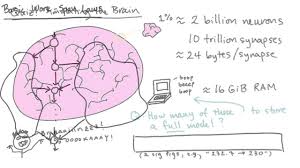 the Brain
1% ≈ 2 billion neurons
10 trillion synapses
≈ 24 bytes/synapse
beep
beeep
boop
≈ 16 GiB RAM
How many of those to store
a full model?
(2 sig figs, e.g., "232.4 → 230")